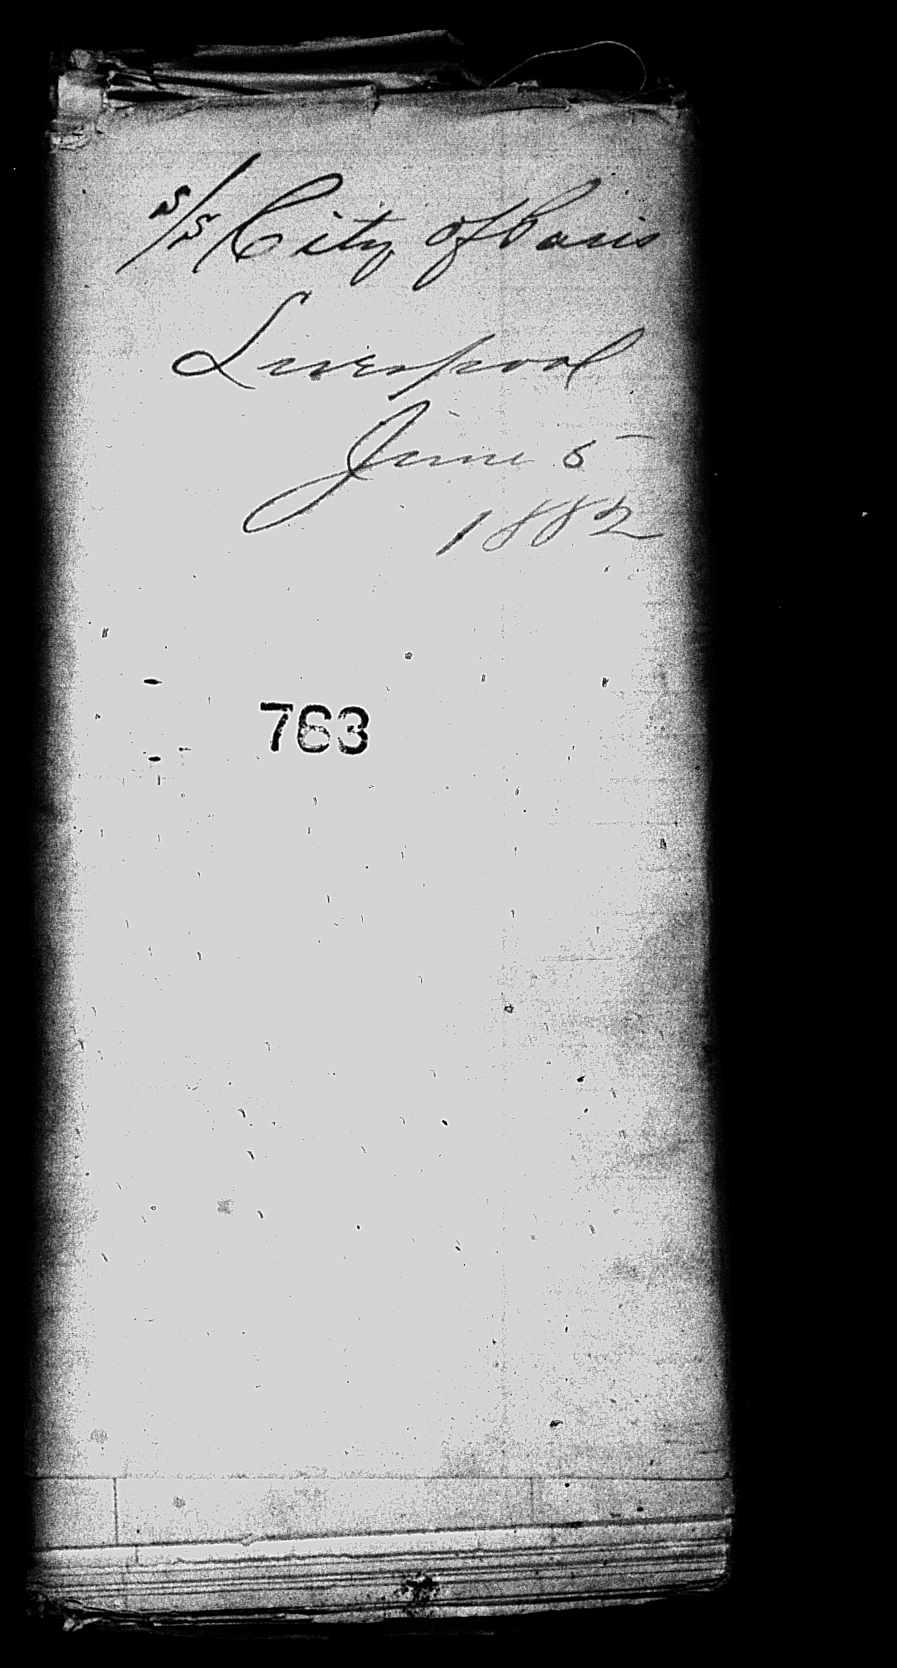 S/S City of Paris
Liverpool
June 5
1882
763